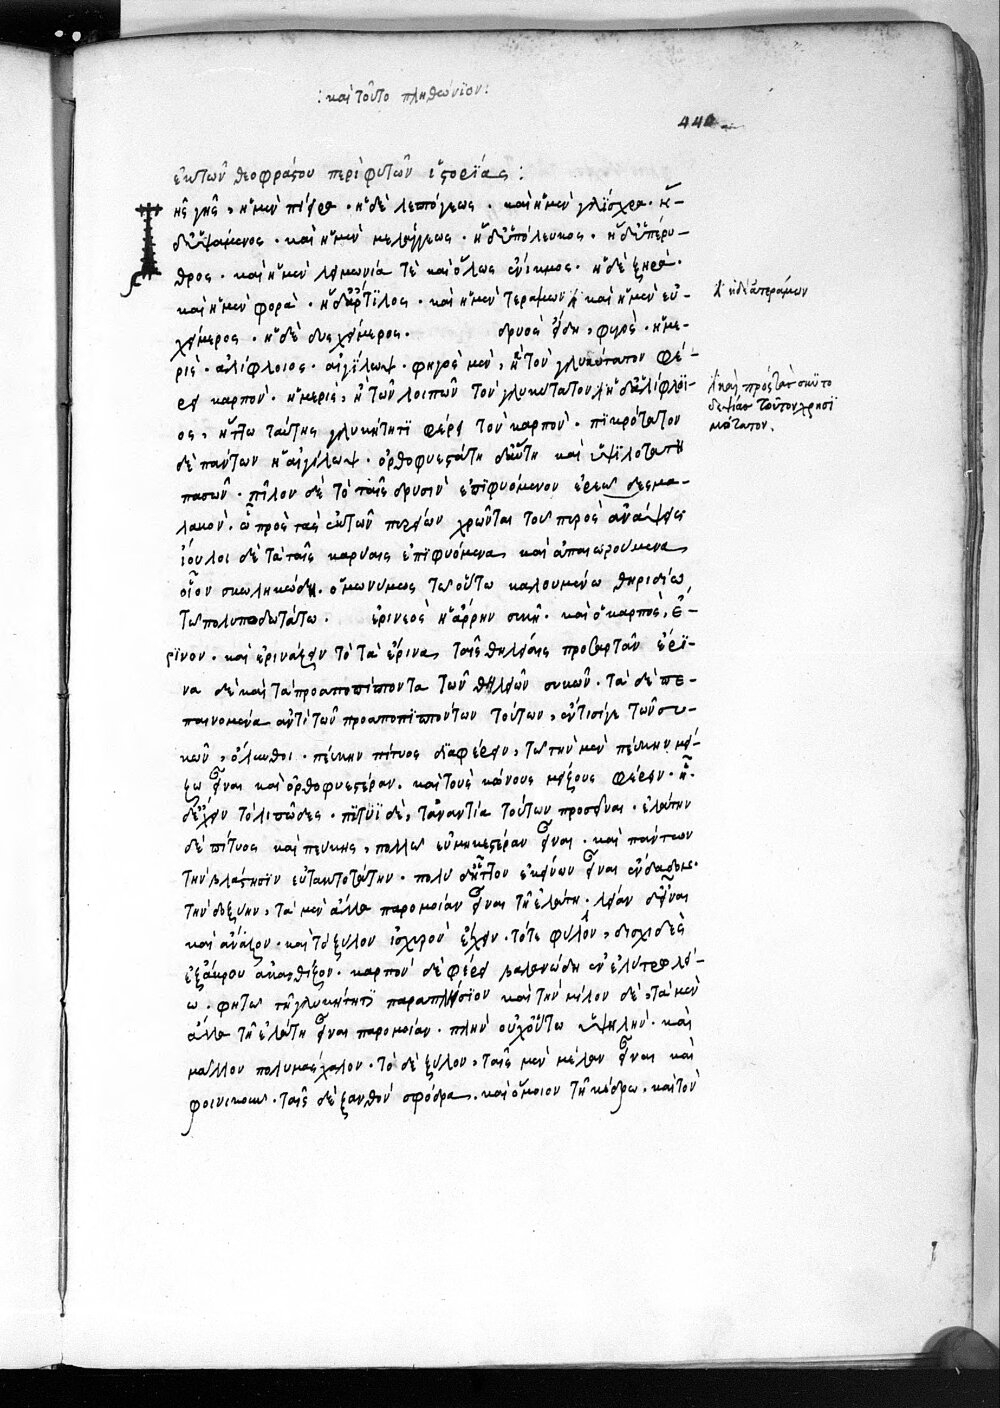 : καὶ τοῦτο πληθώνιον :
440
ἐκ τῶν θεοφράστου περὶ φυτῶν ἱστορίας :
Τῆς γῆς, ἡ μὲν πίειρα · ἡ δὲ λεπτόγεως · καὶ ἡ μὲν γλίσχρα · ἡ
δὲ ψάμμος · καὶ ἡ μὲν μελάγγεως · ἡ δὲ ὑπόλευκος · ἡ δὲ ὑπέρυ-
θρος · καὶ ἡ μὲν λειμωνία τὲ καὶ ὅλως ἔνικμος · ἡ δὲ ξηρά ·
καὶ ἡ μὲν φορὰ · ἡ δὲ · καὶ ἡ μὲν τεράμων καὶ ἡ μὲν εὐ-
χείμερος · ἡ δὲ δυσχείμερος · δρυὸς εἴδη, φηγὸς · ἡμε-
ρὶς · ἁλίφλοιος · αἰγίλωψ · φηγὸς μὲν, ἡ τὸν γλυκύτατον φέ-
ρει καρπόν · ἡμερὶς, ἡ τῶν λοιπῶν τὸν γλυκύτατον ἡ δὲ ἁλίφλοι-
ος, ἧττω ταύτης γλυκύτητι φέρει τὸν καρπόν · πικρότατον
δὲ πάντων ἡ αἰγίλωψ · ὀρθοφυεστάτη δὲ αὕτη καὶ ὑψιλοτάτη
πασῶν · πῖλον δὲ τὸ ταῖς δρυσὶν ἐπιφυόμενον ἐρεῶδες μα-
λακόν · ᾧ πρὸς τὰς ἐκ τῶν πυρείων χρῶνται τοῦ πυρὸς ἀνάψεις
ἴουλοι δὲ τὰ ταῖς καρύαις ἐπιφυόμενα καὶ ἀπαιωρούμενα
οἷον σκωληκώδη · ὁμωνύμως τῶ οὕτω καλουμένω θηριδίω
τῶ πολυποδωτάτω · ἐρινεὸς ἡ ἄρρην συκῆ · καὶ ὁ καρπὸς, ἐ-
ρινόν · καὶ ἐρινάζειν τὸ τὰ ἐρινὰ ταῖς θηλείαις προσαρτᾶν ἐρι-
νὰ δὲ καὶ τὰ προαποπίπτοντα τῶν θηλειῶν συκῶν · τὰ δὲ πε-
παινόμενα ἀντὶ τῶν προαποπιπτόντων τούτων, ἀντὶ τῶν σύ-
κων, ὄλυνθοι · πεύκην πίτυος διαφέρειν, τῶ τὴν μὲν πεύκην μεί-
ζω εἶναι καὶ ὀρθοφυεστέραν · καὶ τοὺς κώνους μείζους φέρειν ·
δ' ἔχειν τὸ λιπῶδες · πίτυϊ δὲ, τἀναντία τούτων προσεῖναι · ἐλάτην
δὲ πίτυος καὶ πεύκης, πολλῶ εὐμηκεστέραν εἶναι · καὶ πάντων
τὴν βλάστησιν εὐτακτοτάτην · πολὺ δὲ ἧττον ἐκείνων εἶναι ἔνδαδον ·
τὴν δὲ ὀξύην, τὰ μὲν ἄλλα παρομοίαν εἶναι τῆ ἐλάτη · λείαν δὲ εἶναι
καὶ ἄνοζον · καὶ τὸ ξύλον ἰσχυρὸν ἔχειν · τότε φυλλον, δισχιδὲς
ἐξ ἄκρου ἀπακανθίζον · καρπὸν δὲ φέρει βαλανώδη ἐν ἐλύτρω λεί-
ω · φηγῶ τὴν γλυκύτητι παραπλήσιον καὶ τὴν μίλον δὲ, τὰ μὲν
ἄλλα τῆ ἐλάτη εἶναι παρομοίαν · πλὴν οὐχ οὕτω ὑψηλὴν · καὶ
μᾶλλον πολυμάσχαλον · τὸ δὲ ξύλον, ταῖς μὲν μέλαν εἶναι καὶ
φοινικοῦν · ταῖς δὲ ξανθὸν σφόδρα · καὶ ὅμοιον τῆ κέδρω · καὶ τὸν
ἡ δὲ ἀτεράμων
καὶ πρός σκυτο
δεψίαν τοῦτον χρησι
μώτατον.